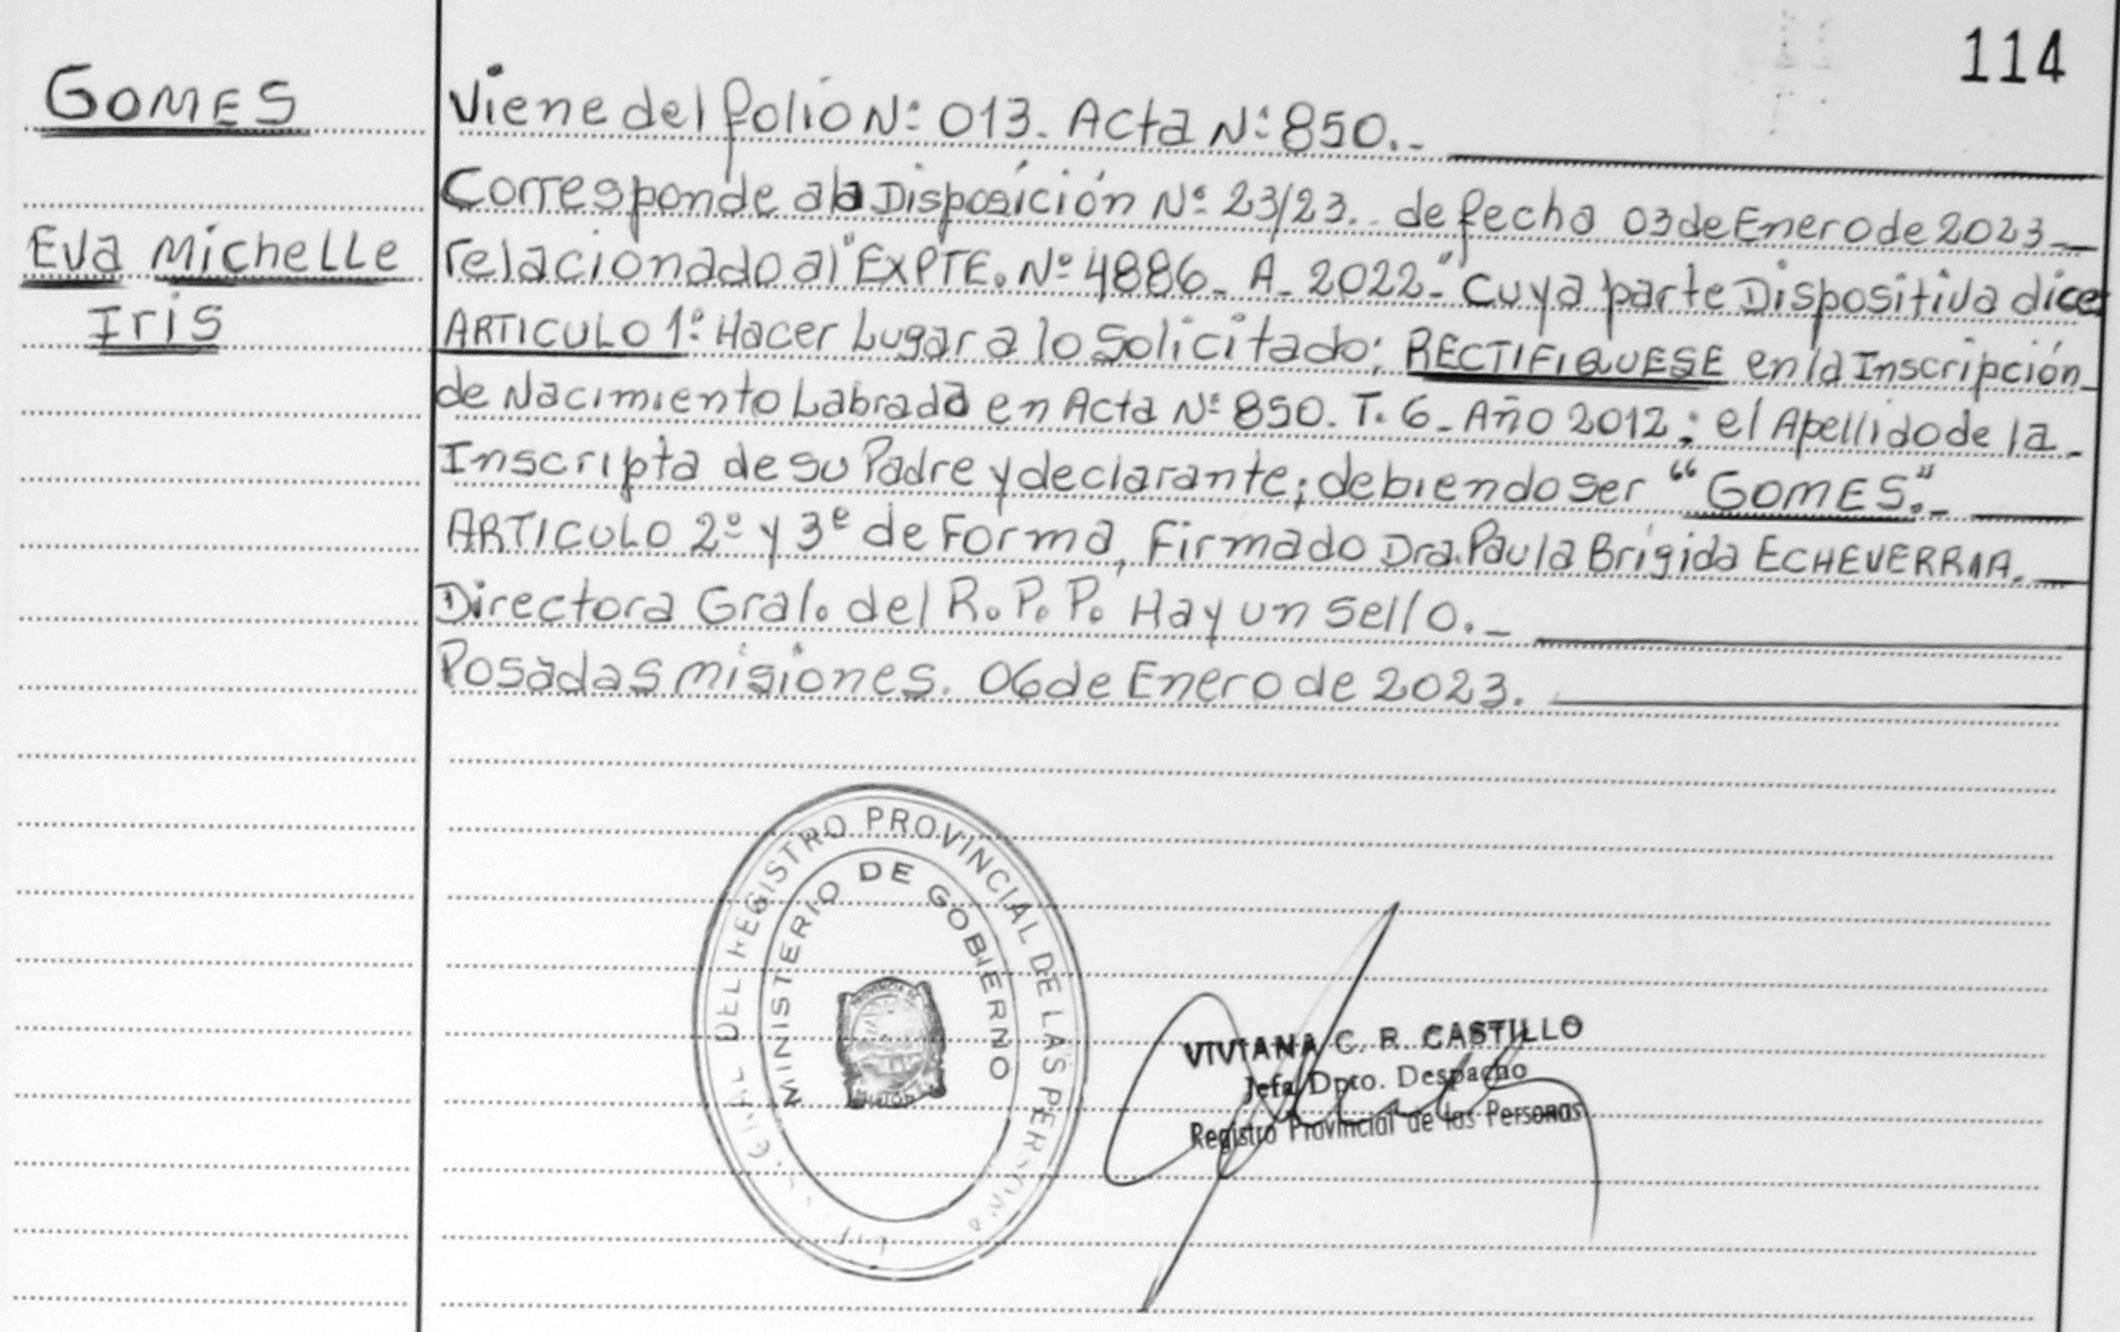 114
GOMES
Eva Michelle
Iris
Viene del folio Nº 013. Acta Nº 850._
Corresponde a la Disposición Nº 23/23.. de fecha 03 de Enero de 2023_
relacionado al "EXPTE. Nº 4886_ A_ 2022_" cuya parte Dispositiva dice
ARTICULO 1º Hacer Lugar a lo Solicitado; RECTIFIQUESE en la Inscripción_
de Nacimiento Labrada en Acta Nº 850. T. 6_ Año 2012; el Apellido de la_
Inscripta de su Padre y declarante; debiendo ser "GOMES."_
ARTICULO 2º y 3º de Forma, Firmado Dra. Paula Brigida ECHEVERRIA._
Directora Gral. del R. P. P. Hay un Sello._
Posadas misiones. 06 de Enero de 2023.
DEL REGISTRO PROVINCIAL DE LAS PERSONA
MINISTERIO DE GOBIERNO
VIVIANA C. R. CASTILLO
Jefa Dpto. Despacho
Registro Provincial de las Personas